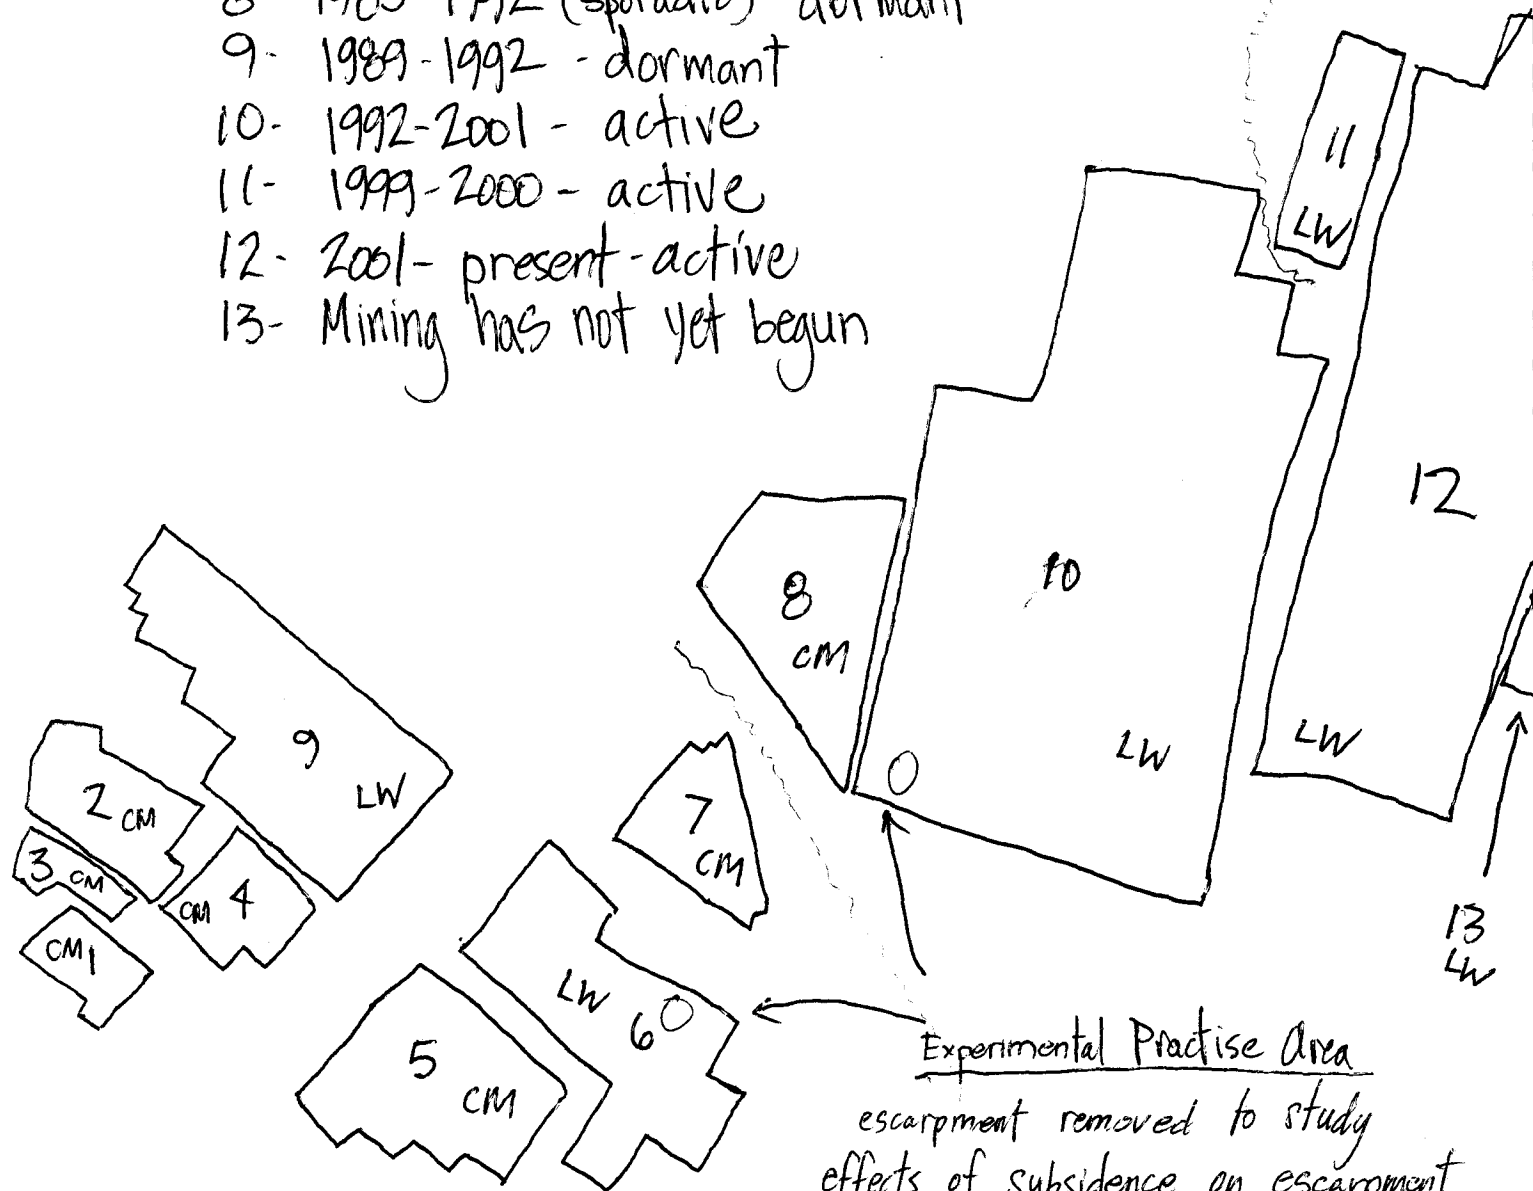 8 1985-1992 (sporadic) dormant
9- 1989-1992 - dormant
10- 1992-2001 - active
11- 1999-2000 - active
12- 2001- present - active
13- Mining has not yet begun
11
LW
12
LW
10
LW
8
CM
9
LW
2 CM
3 CM
CM 4
CM1
7
CM
LW
6
5
CM
13
LW
Experimental Practise Area
escarpment removed to study
effects of subsidence on escarpment